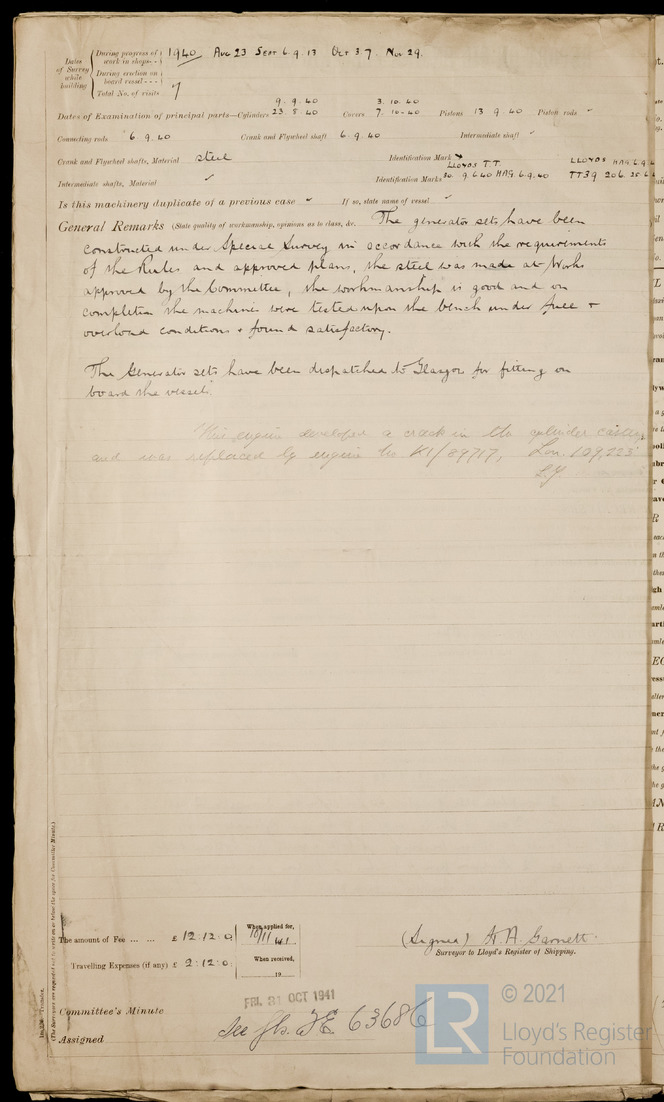 Dates of Survey while building
During progress of work in shops - - 1940 Aug 23 Sept 6. 9. 13 Oct 3 7. Nov 29.
During erection on board vessel - - -
Total No. of visits 7
9. 9. 40 3. 10. 40
Dates of Examination of principal parts—Cylinders 23. 8. 40 Covers 7. 10. 40 Pistons 13 9. 40 Piston rods ✓
Connecting rods 6 9. 40 Crank and Flywheel shaft 6. 9. 40 Intermediate shaft ✓
Crank and Flywheel shafts, Material steel Identification Mark LLOYDS T.T. LLOYDS HAG. 6. 9. 4
Intermediate shafts, Material ✓ Identification Marks 9. 6. 40 HAG. 6. 9. 40 TT39 206. 25. 6
Is this machinery duplicate of a previous case ✓ If so, state name of vessel ✓
General Remarks (State quality of workmanship, opinions as to class, &c. The generator sets have been
constructed under Special Survey in accordance with the requirements
of the Rules and approved plans, the steel was made at Works
approved by the Committee, the workmanship is good and on
completion the machines were tested upon the bench under full +
overload conditions + found satisfactory.
The Generator sets have been dispatched to Glasgow for fitting on
board the vessel.
This engine developed a crack in the cylinder casting
and was replaced by engine No K1/89717, Lon. 109,223
The amount of Fee ... ... £ 12 : 12 : 0 When applied for, 10/11 1941
(Signed) H. A. Garnett.
Surveyor to Lloyd's Register of Shipping.
Travelling Expenses (if any) £ 2 : 12 : 0. When received,
19
FRI. 31 OCT 1941
Committee's Minute
See Gls. F.E. 63686
Assigned
(The Surveyors are requested not to write on or below the space for Committee Minute.)
LR
© 2021
Lloyd's Register
Foundation